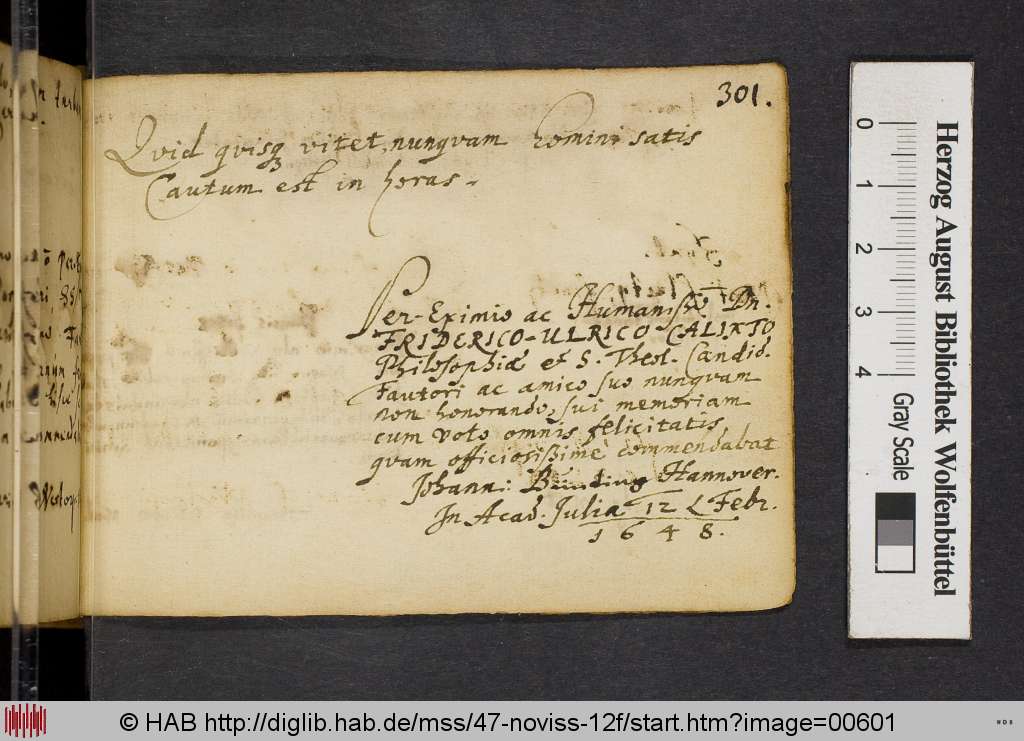 301.
Qvid qvisq vitet, nunqvam homini satis
Cautum est in horas.
Per-Eximio ac Humanissº Dn.
FRIDERICO-ULRICO CALIXTO
Philosophiæ et S. Theol. Candid.
Fautori ac amico suo nunqvam
non honorando, sui memoriam
cum voto omnis felicitatis
qvam officiosißime commendabat
Johann: Bünting Hannover.
In Acad. Julia 12 Febr.
1648.
0 1 2 3 4
Gray Scale
Herzog August Bibliothek Wolfenbüttel
© HAB http://diglib.hab.de/mss/47-noviss-12f/start.htm?image=00601